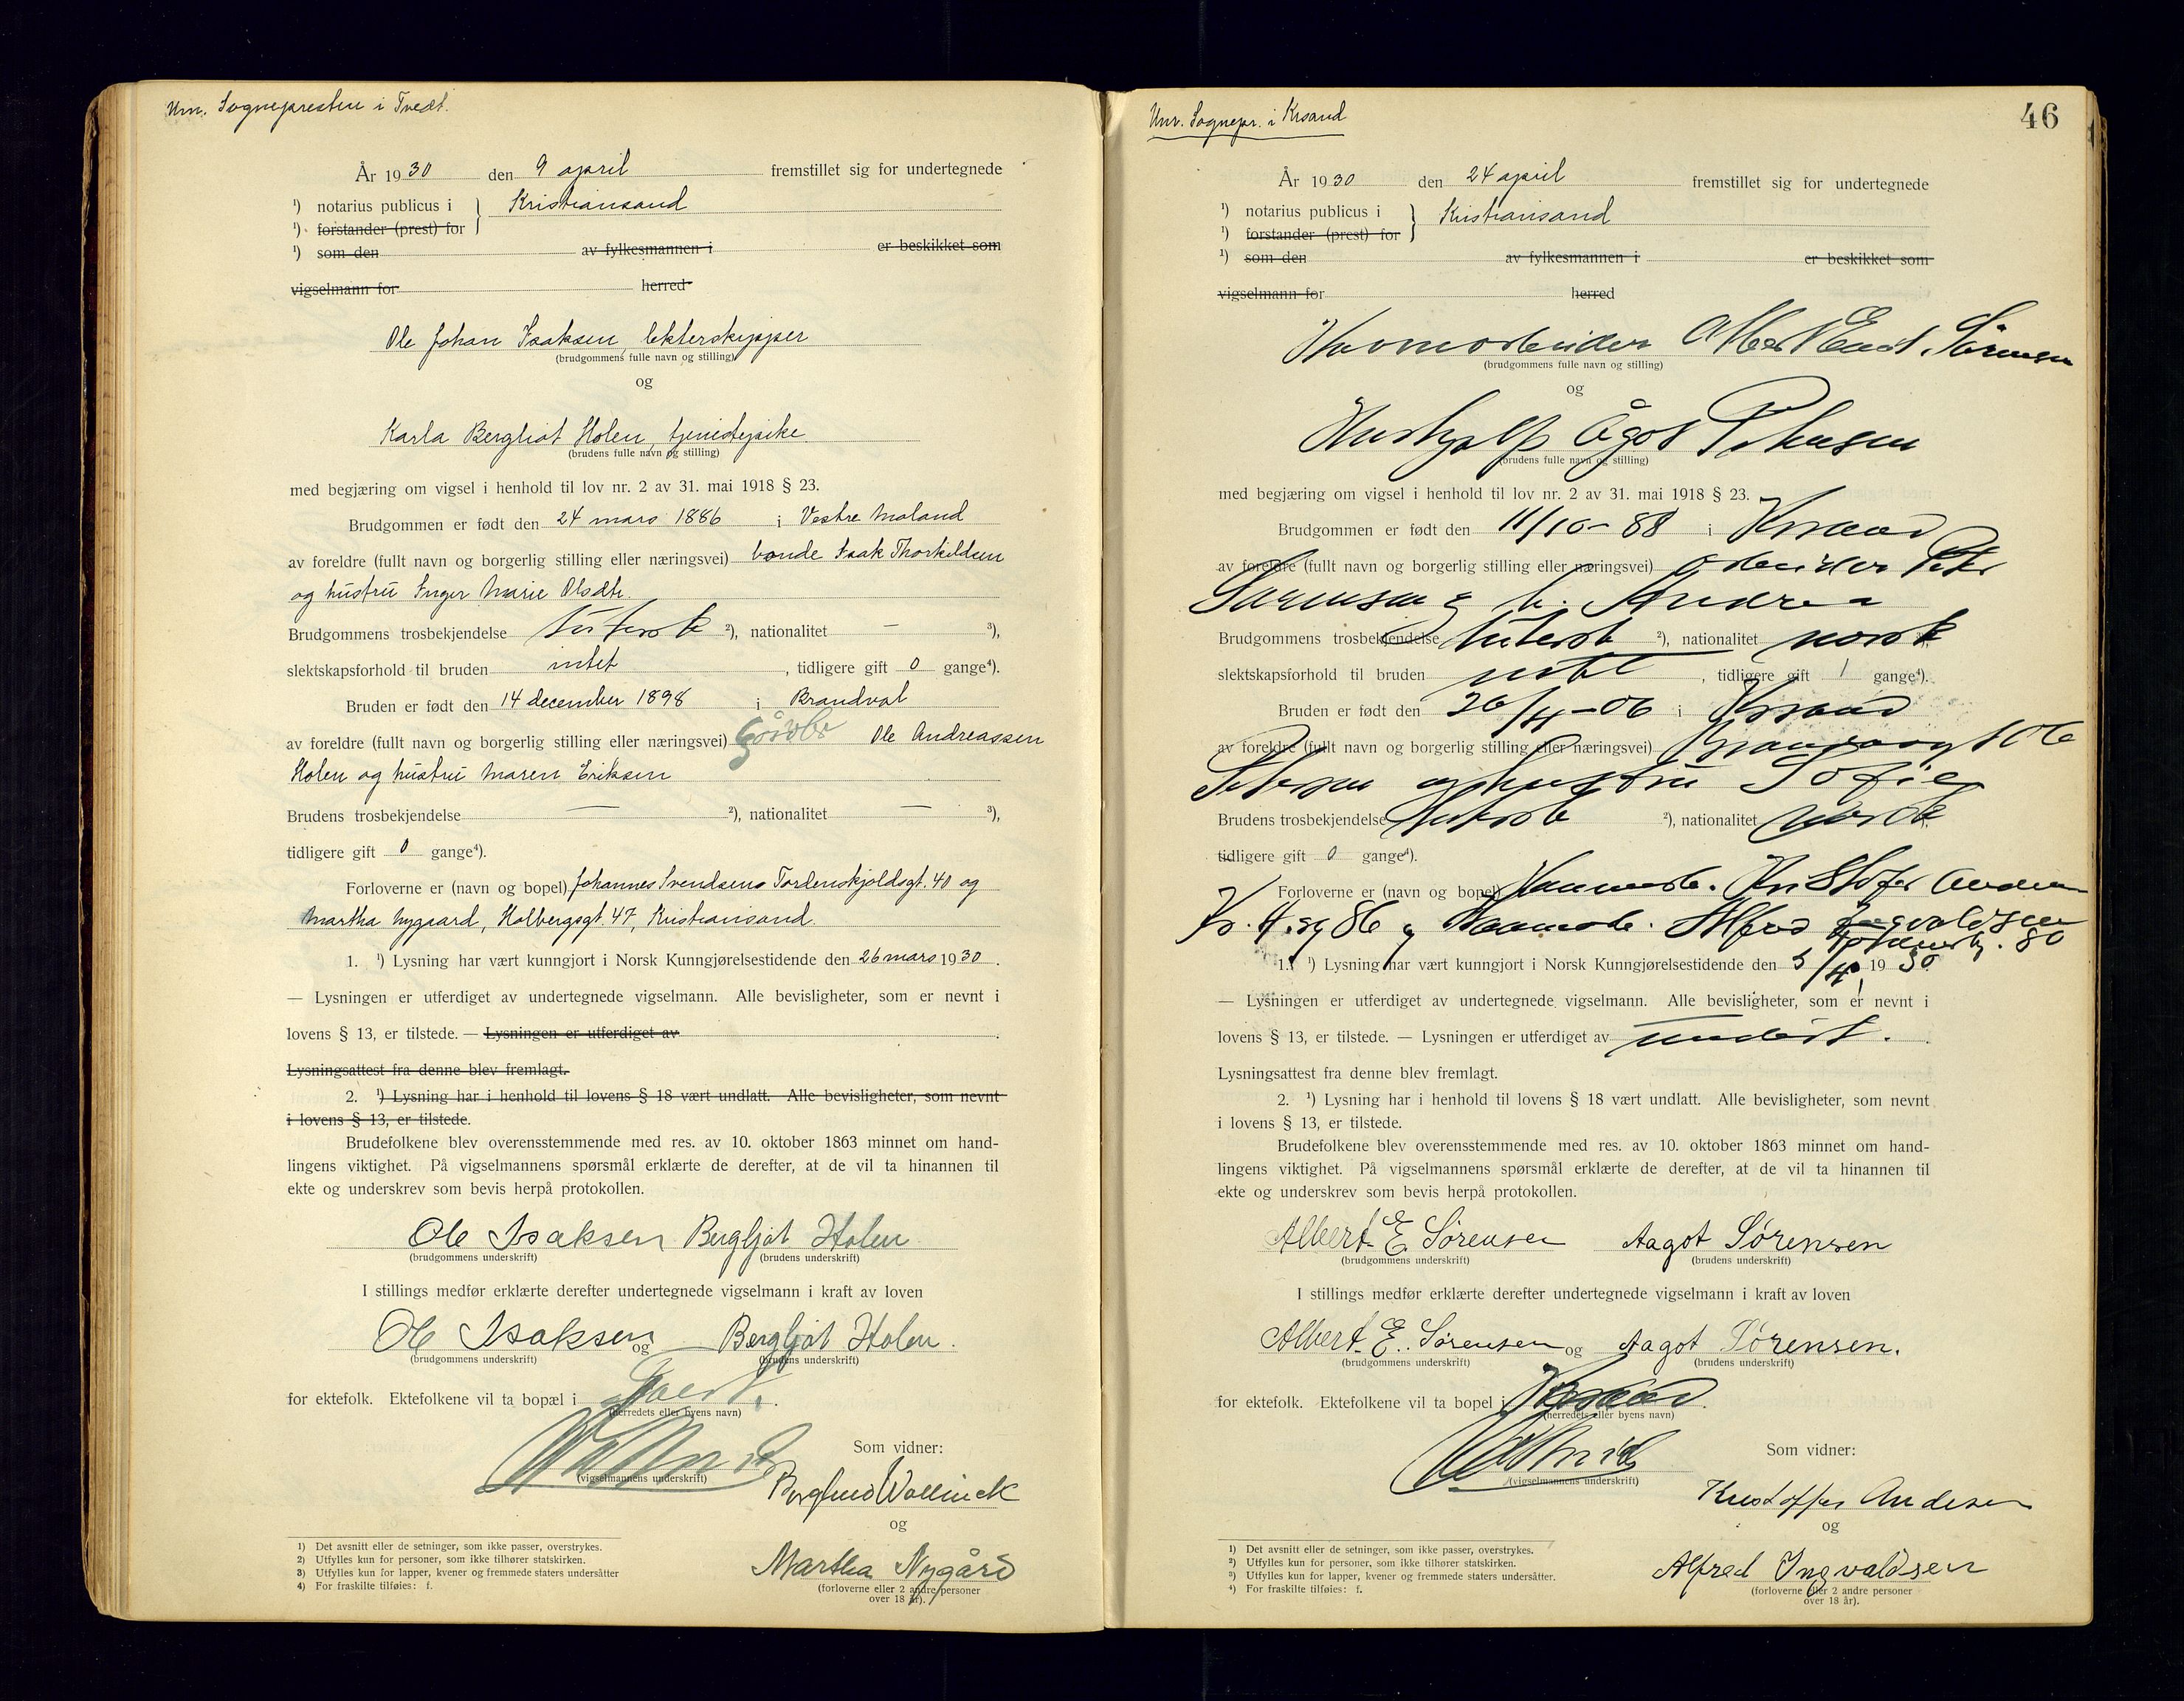 Um. Sognepresten i Tvedt.
År 1930 den 9 april fremstillet sig for undertegnede
¹) notarius publicus i } Kristiansand
¹) forstander (prest) for
¹) som den av fylkesmannen i er beskikket som
vigselmann for herred
Ole Johan Isaksen, lekterskipper
(brudgommens fulle navn og stilling)
og
Karla Bergliot Holen, tjenestepike
(brudens fulle navn og stilling)
med begjæring om vigsel i henhold til lov nr. 2 av 31. mai 1918 § 23.
Brudgommen er født den 24 mars 1886 i Vestre Moland
av foreldre (fullt navn og borgerlig stilling eller næringsvei) bonde Isak Thorkildsen
og hustru Inger Marie Olsdtr.
Brudgommens trosbekjendelse luthersk ²), nationalitet — ³),
slektskapsforhold til bruden intet, tidligere gift 0 gange⁴).
Bruden er født den 14 december 1898 i Brandval
av foreldre (fullt navn og borgerlig stilling eller næringsvei) Ole Andreassen
Holen og hustru Maren Eriksen
Brudens trosbekjendelse — ²), nationalitet — ³),
tidligere gift 0 gange⁴).
Forloverne er (navn og bopel) Johannes Svendsens Tordenskjoldsgt. 40 og
Martha Nygaard, Holbergsgt. 47, Kristiansand.
1. ¹) Lysning har vært kunngjort i Norsk Kunngjørelsestidende den 26 mars 1930.
— Lysningen er utferdiget av undertegnede vigselmann. Alle bevisligheter, som er nevnt i
lovens § 13, er tilstede. — Lysningen er utferdiget av .
Lysningsattest fra denne blev fremlagt.
2. ¹) Lysning har i henhold til lovens § 18 vært undlatt. Alle bevisligheter, som nevnt
i lovens § 13, er tilstede.
Brudefolkene blev overensstemmende med res. av 10. oktober 1863 minnet om hand-
lingens viktighet. På vigselmannens spørsmål erklærte de derefter, at de vil ta hinannen til
ekte og underskrev som bevis herpå protokollen.
Ole Isaksen Bergljot Holen
(brudgommens underskrift) (brudens underskrift)
I stillings medfør erklærte derefter undertegnede vigselmann i kraft av loven
Ole Isaksen og Bergljot Holen.
(brudgommens underskrift) (brudens underskrift)
for ektefolk. Ektefolkene vil ta bopæl i Tveit.
(herredets eller byens navn)
Som vidner:
(vigselmannens underskrift)
og
Martha Nygård
(forloverne eller 2 andre personer
over 18 år).
1) Det avsnitt eller de setninger, som ikke passer, overstrykes.
2) Utfylles kun for personer, som ikke tilhører statskirken.
3) Utfylles kun for lapper, kvener og fremmede staters undersåtter
4) For fraskilte tilføies: f.
46
Unr. Sognepr. i Krsand
År 1930 den 24 april fremstillet sig for undertegnede
¹) notarius publicus i } Kristiansand
¹) forstander (prest) for
¹) som den av fylkesmannen i er beskikket som
vigselmann for herred
Havnearbeider Albert Emil Sørensen
(brudgommens fulle navn og stilling)
og
Hushjelp Ågot Petersen
(brudens fulle navn og stilling)
med begjæring om vigsel i henhold til lov nr. 2 av 31. mai 1918 § 23.
Brudgommen er født den 11/10-88 i Krsand
av foreldre (fullt navn og borgerlig stilling eller næringsvei) arbeider Peter
Sørensen & h. Andrea
Brudgommens trosbekjendelse luthersk ²), nationalitet norsk
slektskapsforhold til bruden intet, tidligere gift 1 gange⁴).
Bruden er født den 26/4-06 i Krsand
av foreldre (fullt navn og borgerlig stilling eller næringsvei)
Petersen og hustru Sofie
Brudens trosbekjendelse luthersk ²), nationalitet norsk
tidligere gift 0 gange⁴).
Forloverne er (navn og bopel) Kristofer Andersen
86 & Alfred Ingvaldsen
80
1. ¹) Lysning har vært kunngjort i Norsk Kunngjørelsestidende den 5/4 1930
— Lysningen er utferdiget av undertegnede vigselmann. Alle bevisligheter, som er nevnt i
lovens § 13, er tilstede. — Lysningen er utferdiget av undert.
Lysningsattest fra denne blev fremlagt.
2. ¹) Lysning har i henhold til lovens § 18 vært undlatt. Alle bevisligheter, som nevnt
i lovens § 13, er tilstede.
Brudefolkene blev overensstemmende med res. av 10. oktober 1863 minnet om hand-
lingens viktighet. På vigselmannens spørsmål erklærte de derefter, at de vil ta hinannen til
ekte og underskrev som bevis herpå protokollen.
Albert E. Sørensen Aagot Sørensen
(brudgommens underskrift) (brudens underskrift)
I stillings medfør erklærte derefter undertegnede vigselmann i kraft av loven
Albert E. Sørensen og Aagot Sørensen.
(brudgommens underskrift) (brudens underskrift)
for ektefolk. Ektefolkene vil ta bopel i Krsand.
(herredets eller byens navn)
Som vidner:
(vigselmannens underskrift)
Kristoffer Andersen
og
Alfred Ingvaldsen
(forloverne eller 2 andre personer
over 18 år).
¹) Det avsnitt eller de setninger, som ikke passer, overstrykes.
²) Utfylles kun for personer, som ikke tilhører statskirken.
³) Utfylles kun for lapper, kvener og fremmede staters undersåtter.
⁴) For fraskilte tilføies: f.